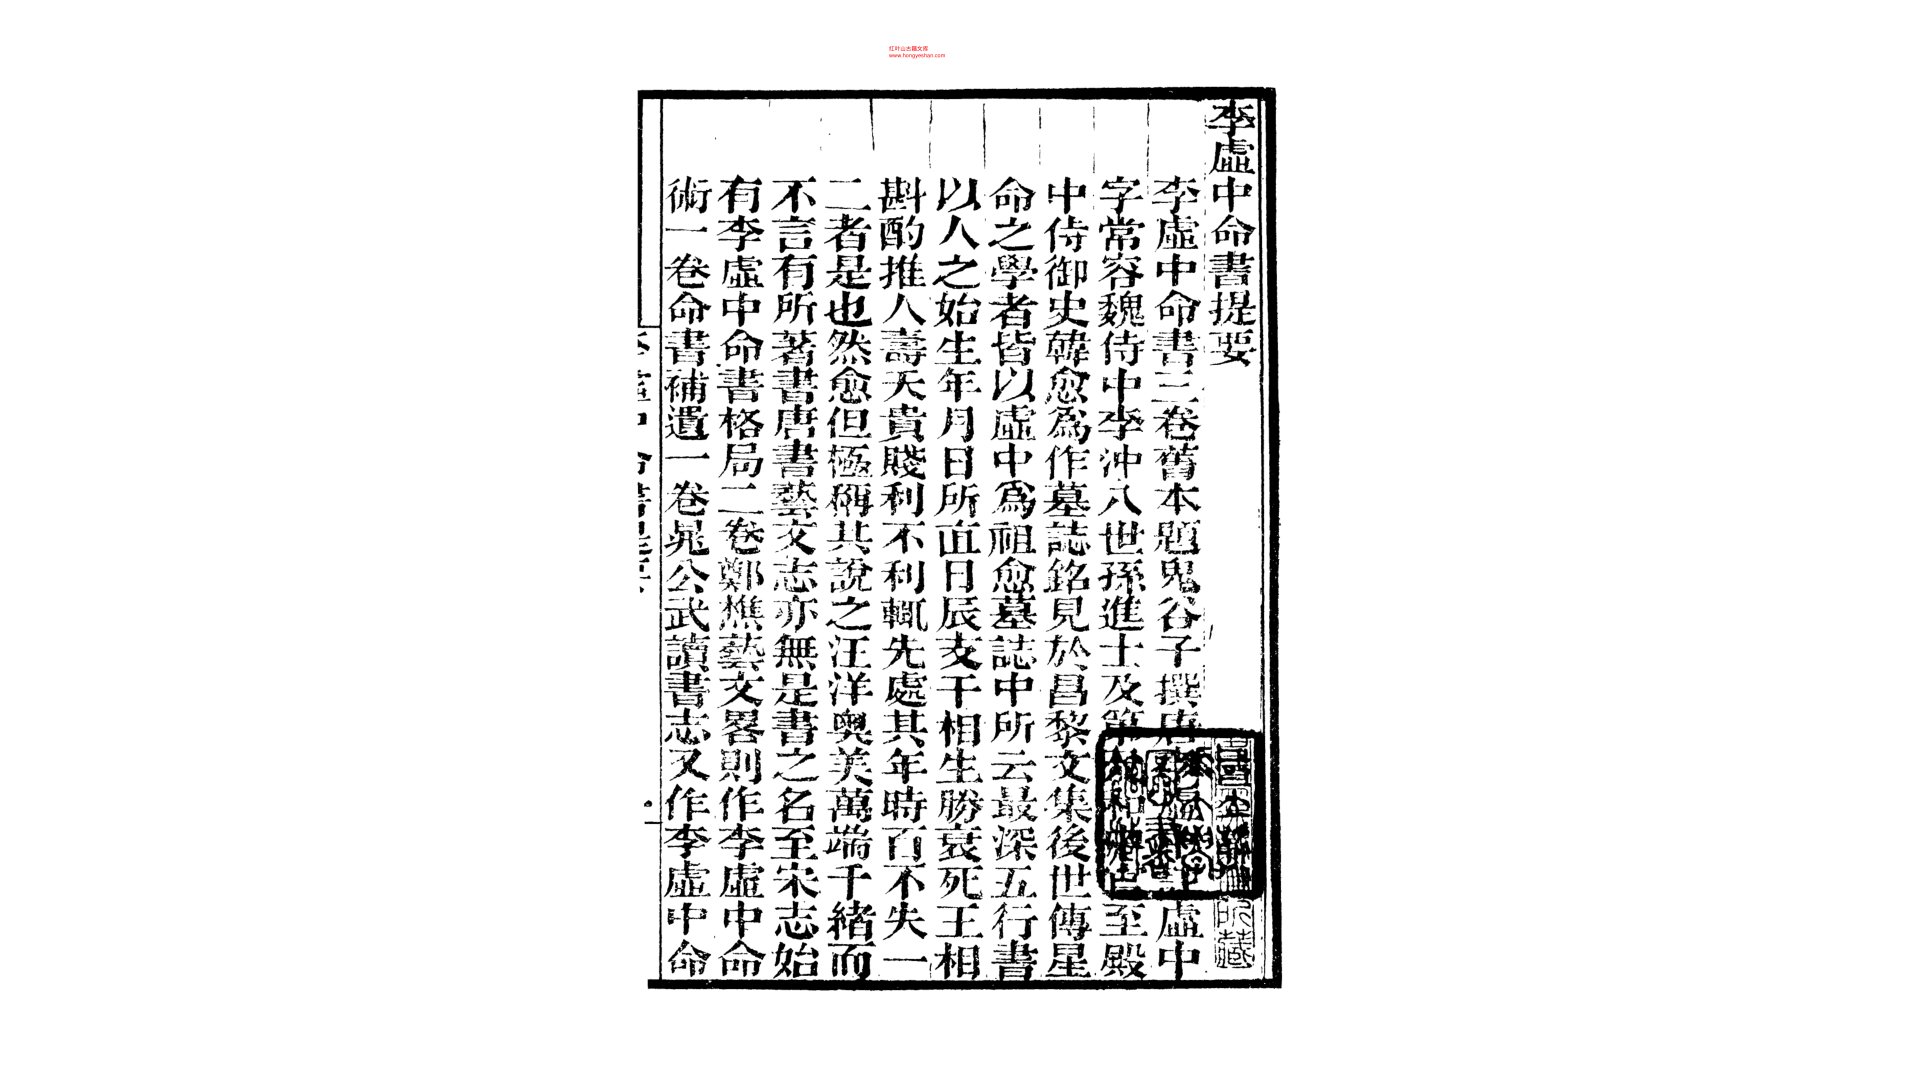 红叶山古籍文库
www.hongyeshan.com
李虛中命書提要
李虛中命書三卷舊本題鬼谷子撰唐李虛中註虛中
字常容魏侍中李沖八世孫進士及第元和中官至殿
中侍御史韓愈爲作墓誌銘見於昌黎文集後世傳星
命之學者皆以虛中爲祖愈墓誌中所云最深五行書
以人之始生年月日所直日辰支干相生勝衰死王相
斟酌推人壽夭貴賤利不利輒先處其年時百不失一
二者是也然愈但極稱其說之汪洋奧美萬端千緒而
不言有所著書唐書藝文志亦無是書之名至宋志始
有李虛中命書格局二卷鄭樵藝文畧則作李虛中命
術一卷命書補遺一卷晁公武讀書志又作李虛中命